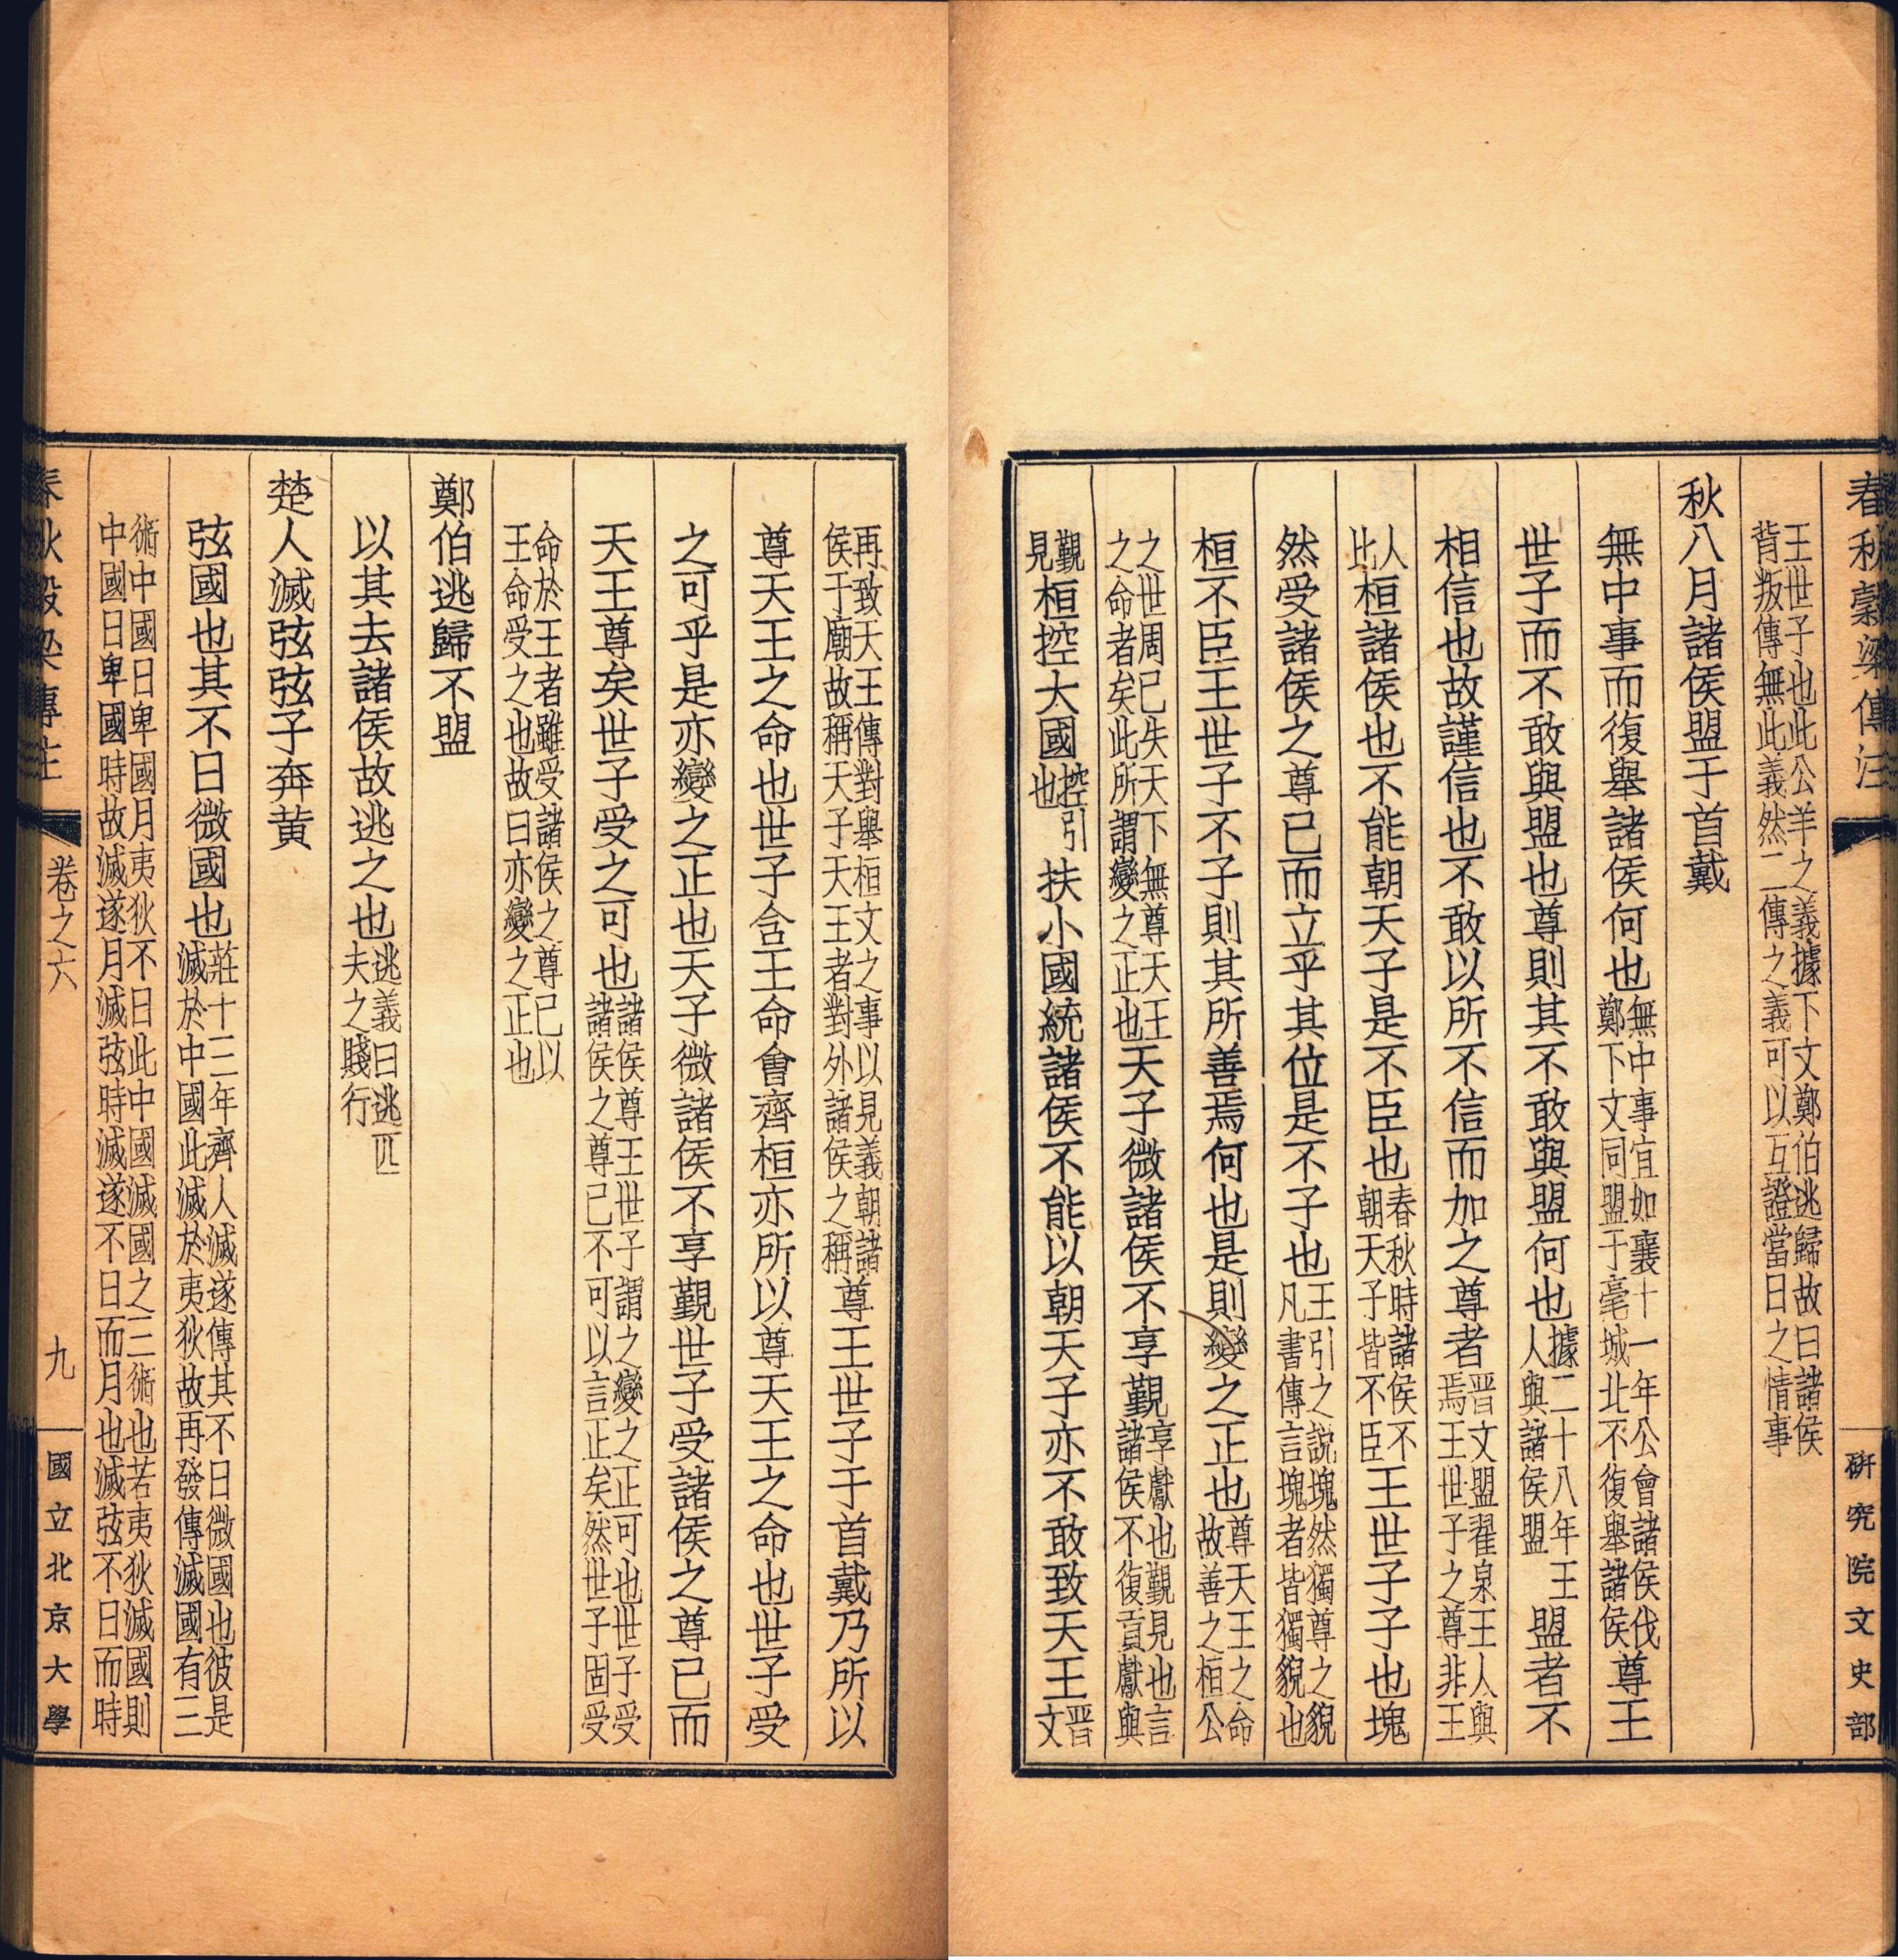 春秋穀梁傳注
研究院文史部
王世子也此公羊之義據下文鄭伯逃歸故曰諸侯背叛傳無此義然二傳之義可以互證當日之情事
秋八月諸侯盟于首戴
無中事而復舉諸侯何也無中事宜如襄十一年公會諸侯伐鄭下文同盟于亳城北不復舉諸侯尊王
世子而不敢與盟也尊則其不敢與盟何也據二十八年王人與諸侯盟盟者不
相信也故謹信也不敢以所不信而加之尊者晋文盟翟泉王人與焉王世子之尊非王
人比桓諸侯也不能朝天子是不臣也春秋時諸侯不朝天子皆不臣王世子子也塊
然受諸侯之尊已而立乎其位是不子也王引之說塊然獨尊之貌凡書傳言塊者皆獨貌也
桓不臣王世子不子則其所善焉何也是則變之正也尊天王之命故善之桓公
之世周已失天下無尊天王之命者矣此所謂變之正也天子微諸侯不享覲享獻也覲見也言諸侯不復貢獻與
覲見桓控大國控引也扶小國統諸侯不能以朝天子亦不敢致天王晋文
再致天王傳對舉桓文之事以見義朝諸侯于廟故稱天子天王者對外諸侯之稱尊王世子于首戴乃所以
尊天王之命也世子含王命會齊桓亦所以尊天王之命也世子受
之可乎是亦變之正也天子微諸侯不享覲世子受諸侯之尊已而
天王尊矣世子受之可也諸侯尊王世子謂之變之正可也世子受諸侯之尊已不可以言正矣然世子固受
命於王者雖受諸侯之尊已以王命受之也故曰亦變之正也
鄭伯逃歸不盟
以其去諸侯故逃之也逃義曰逃匹夫之賤行
楚人滅弦弦子奔黄
弦國也其不日微國也莊十三年齊人滅遂傳其不日微國也彼是滅於中國此滅於夷狄故再發傳滅國有三
術中國日卑國月夷狄不日此中國滅國之三術也若夷狄滅國則中國日卑國時故滅遂月滅弦時滅遂不日而月也滅弦不日而時
春秋穀梁傳注
卷之六
九
國立北京大學